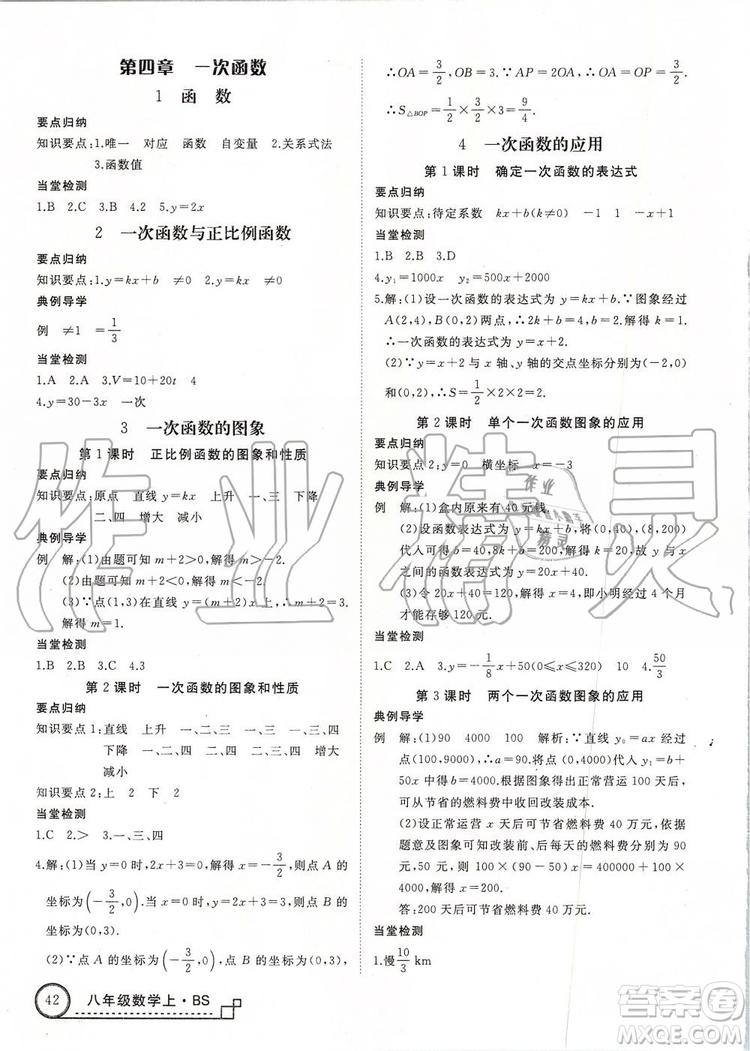 第四章 一次函数
1 函 数
要点归纳
知识要点:1.唯一 对应 函数 自变量 2.关系式法
3.函数值
当堂检测
1.B 2.C 3.A 4.2 5.y=2x
2 一次函数与正比例函数
要点归纳
知识要点:1.y=kx+b ≠0 2.y=kx ≠0
典例导学
例 ≠1 =1/3
当堂检测
1.A 2.A 3.V=10+20t 4
4.y=30-3x 一次
3 一次函数的图象
第1课时 正比例函数的图象和性质
要点归纳
知识要点:原点 直线 y=kx 上升 一、三 下降
二、四 增大 减小
典例导学
例 解:(1)由题可知 m+2>0,解得 m>-2.
(2)由题可知 m+2<0,解得 m<-2.
(3)∵点(1,3)在直线 y=(m+2)x 上,∴m+2=3.
解得 m=1.
当堂检测
1.B 2.B 3.C 4.3
第2课时 一次函数的图象和性质
要点归纳
知识要点1:直线 上升 一、二、三 一、三 一、三、四
下降 一、二、四 二、四 二、三、四 增大
减小
知识要点2:上 2 下 2
当堂检测
1.C 2.> 3.一、三、四
4.解:(1)当 y=0 时,2x+3=0,解得 x=-3/2,则点 A 的
坐标为(-3/2,0).当 x=0 时,y=3,则点 B 的
坐标为(0,3).
(2)∵点 A 的坐标为(-3/2,0),点 B 的坐标为(0,3),
∴OA=3/2,OB=3.∵OP=2OA,∴OP=3.
∴S△BOP=1/2×3/2×3=9/4.
4 一次函数的应用
第1课时 确定一次函数的表达式
要点归纳
知识要点:待定系数 kx+b(k≠0) -1 1 -x+1
当堂检测
1.B 2.B 3.D
4.y₁=1000x y₂=500x+2000
5.解:(1)设一次函数的表达式为 y=kx+b.∵图象经过
A(2,4),B(0,2)两点,∴b=2,2k+b=4.∴k=1.
∴一次函数的表达式为 y=x+2.
(2)∵y=x+2 与 x 轴、y 轴的交点坐标分别为(-2,0)
和(0,2),∴S=1/2×2×2=2.
第2课时 单个一次函数图象的应用
要点归纳
知识要点2:y=0 横坐标 x=-3
典例导学
例 解:(1)盒内原来有 40 元钱.
(2)设函数表达式为 y=kx+b,将(0,40),(8,200)
代入可得 b=40,8k+b=200,解得 k=20.∴y与x之
间的函数表达式为 y=20x+40.
(3)令 20x+40=120,解得 x=4,即小明经过 4 个月
才能存够 120 元.
当堂检测
1.C 2.A 3.y=-1/8x+50(0≤x≤400) 4.50/3
第3课时 两个一次函数图象的应用
典例导学
例 解:(1)90 4000 100 解析:∵直线 y₀=ax 过点
(100,9000),∴a=90.∵直线 y₁=b+50x 过点(100,
9000),∴b=4000.根据图象得出正常营运 100 天后,
可从节省的燃料费中收回改装成本.
(2)设正常运营 x 天后可节省燃料费 40 万元,依据
题意及图可知改装前、后的燃料费每天分别为 90
元,50 元,则 100×(90-50)x=400000+100×4000,
解得 x=200.
答:200 天后可节省燃料费 40 万元.
当堂检测
1.慢 10/3 km
42 八年级数学上·BS
作业精灵
答案圈
MXQE.COM